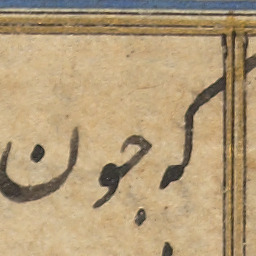 که چون